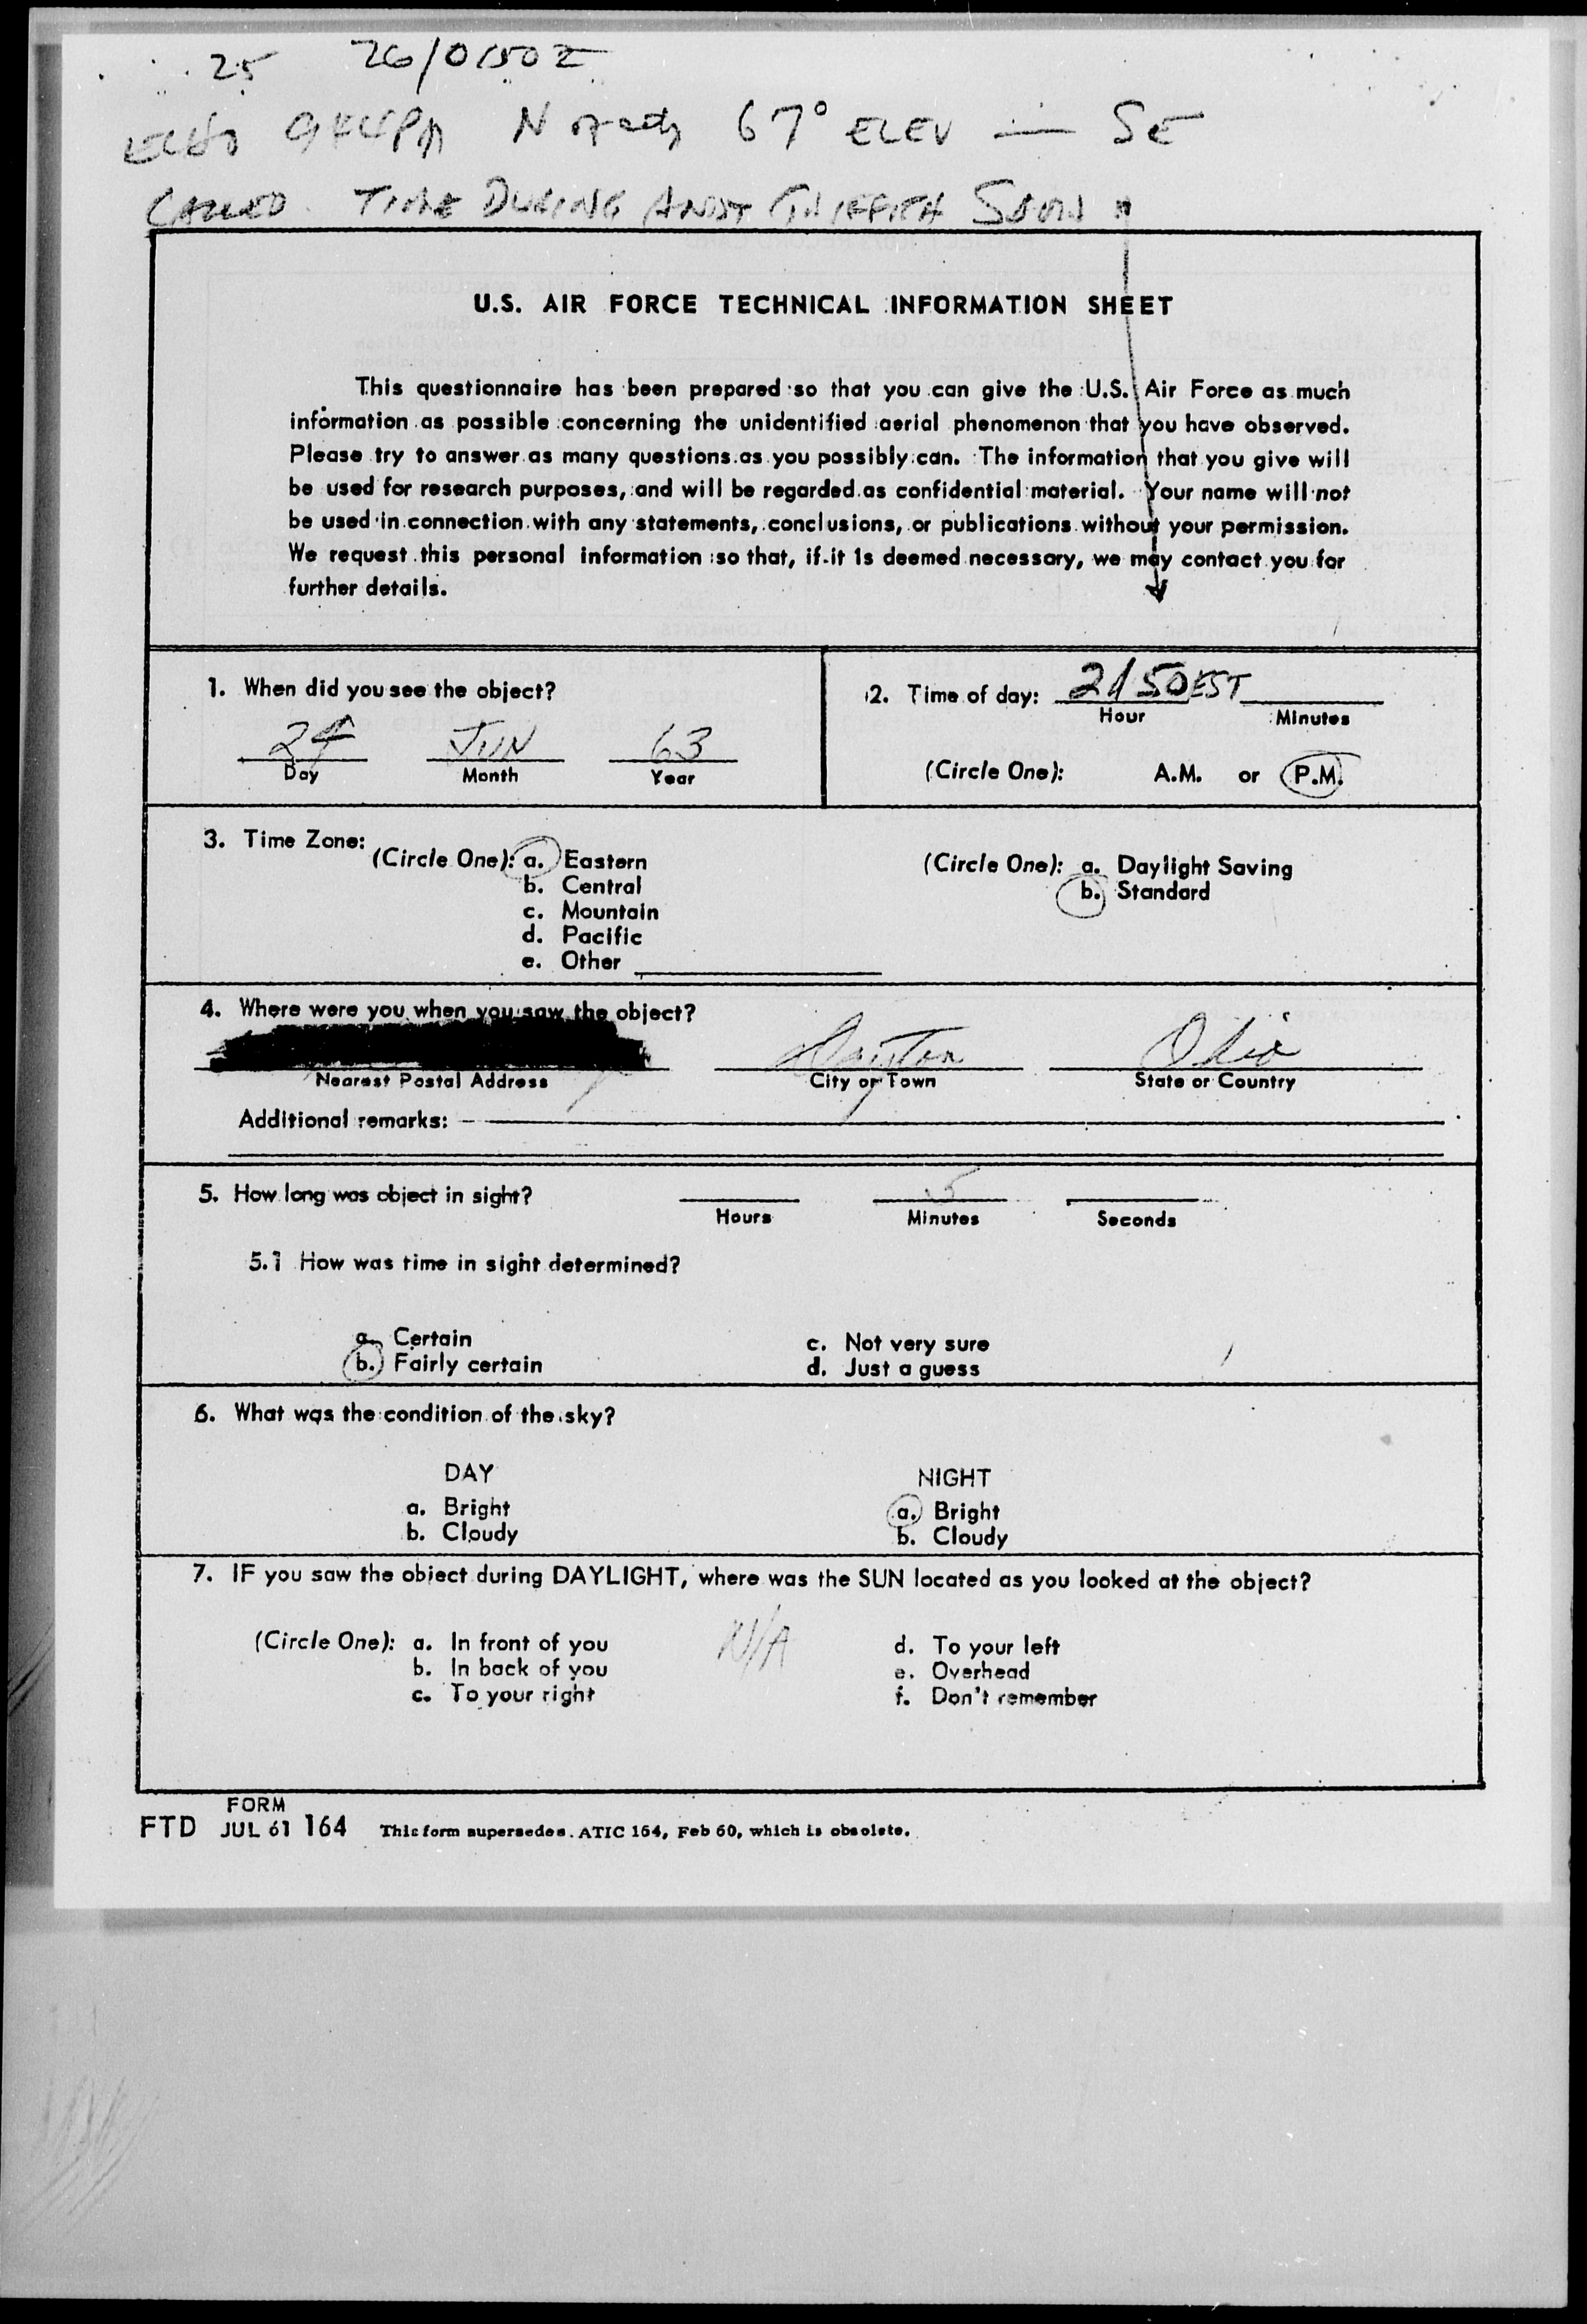 25 26/0150Z
ECHO 944PM North 67° ELEV — SE
CALLED. TIME DURING ANDY GRIFFITH SHOW
U.S. AIR FORCE TECHNICAL INFORMATION SHEET
This questionnaire has been prepared so that you can give the U.S. Air Force as much
information as possible concerning the unidentified aerial phenomenon that you have observed.
Please try to answer as many questions as you possibly can. The information that you give will
be used for research purposes, and will be regarded as confidential material. Your name will not
be used in connection with any statements, conclusions, or publications without your permission.
We request this personal information so that, if it is deemed necessary, we may contact you for
further details.
1. When did you see the object?
24 JUN 63
Day Month Year
2. Time of day: 2150 EST
Hour Minutes
(Circle One): A.M. or P.M.
3. Time Zone:
(Circle One): a. Eastern
b. Central
c. Mountain
d. Pacific
e. Other
(Circle One): a. Daylight Saving
b. Standard
4. Where were you when you saw the object?
Dayton Ohio
Nearest Postal Address City or Town State or Country
Additional remarks:
5. How long was object in sight? 5
Hours Minutes Seconds
5.1 How was time in sight determined?
a. Certain
b. Fairly certain
c. Not very sure
d. Just a guess
6. What was the condition of the sky?
DAY
a. Bright
b. Cloudy
NIGHT
a. Bright
b. Cloudy
7. IF you saw the object during DAYLIGHT, where was the SUN located as you looked at the object?
(Circle One): a. In front of you
b. In back of you
c. To your right
N/A
d. To your left
e. Overhead
f. Don't remember
FORM
FTD JUL 61 164 This form supersedes ATIC 164, Feb 60, which is obsolete.